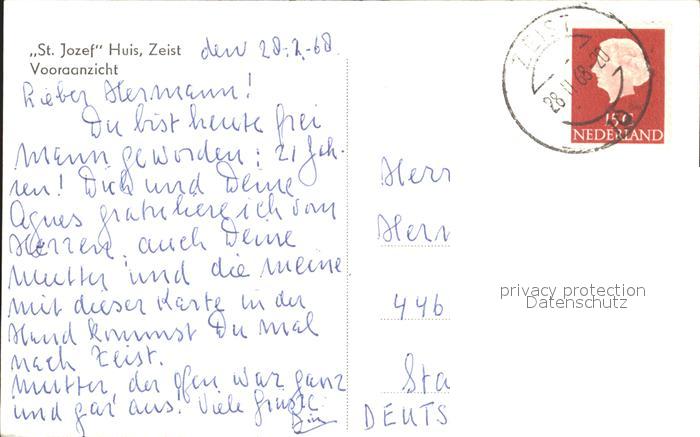 „St. Jozef” Huis, Zeist den 28.2.68.
Vooraanzicht
Lieber Hermann!
Du bist heute frei
mann geworden: 21 Jah-
ren! Dich und Deine
Agnes gratuliere ich vom
Herzen, auch Deine
Mutter und die meine.
mit dieser Karte in der
Hand kommst Du mal
nach Zeist.
Mutter, der Ofen war ganz
und gar aus. Viele Grüsse
ZEIST
28 II 68-20
15c
NEDERLAND
Herr
Herr
446
Sta
DEUTS
privacy protection
Datenschutz